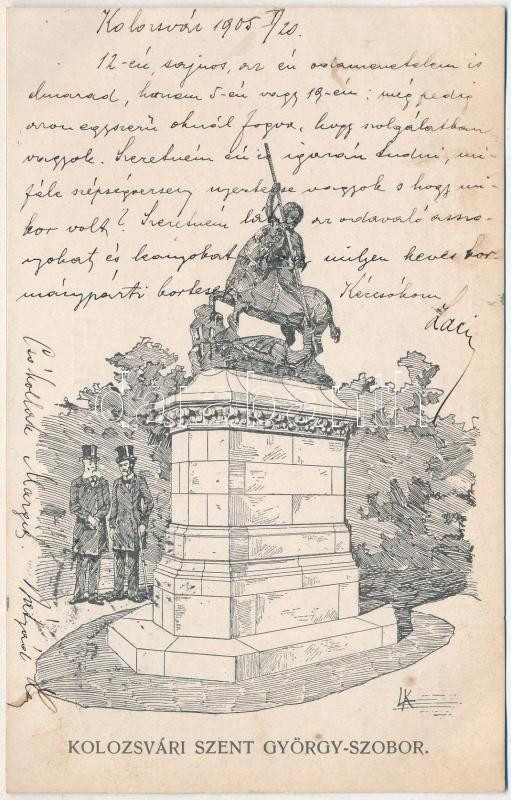 Kolozsvár 1905 I/20.
12-én, sajnos, az én odamenetelem is
elmarad, hanem 5-én vagy 19-én; még pedig
azon egyszerű oknál fogva, hogy szolgálatban
vagyok. Szeretném én is igazán tudni, mi-
féle szépségverseny nyertese vagyok s hogy mi-
kor volt? Szeretném az odavaló asszo-
nyokat és leányokat milyen kevés kor-
mánypárti kortese
Kézcsókom
Laci
Csókollak Margit.
KOLOZSVÁRI SZENT GYÖRGY-SZOBOR.
LK